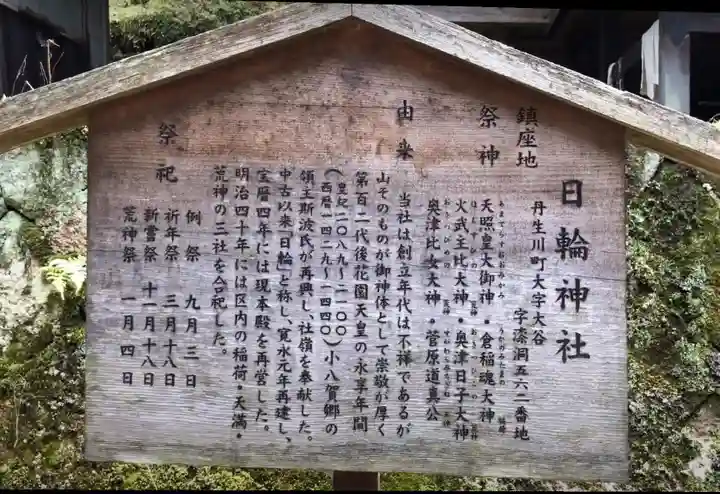 日輪神社
鎮座地
丹生川町大字大谷
字漆洞五六二番地
祭神
天照皇大御神・倉稲魂大神
火武主比大神・奥津日子大神
奥津比女大神・菅原道真公
由来
当社は創立年代は不祥であるが
山そのものが御神体として崇敬が厚く
第百二代後花園天皇の永享年間
(皇紀二〇八九〜二一〇〇)
(西暦一四二九〜一四四〇)小八賀郷の
領主斯波氏が再興し、社領を奉献した。
中古以来「日輪」と称し、寛永元年再建し、
宝暦四年には現本殿を再営した。
明治四十年には区内の稲荷・天満・
荒神の三社を合祀した。
祭祀
例祭 九月三日
祈年祭 三月十八日
新嘗祭 十一月十八日
荒神祭 一月四日